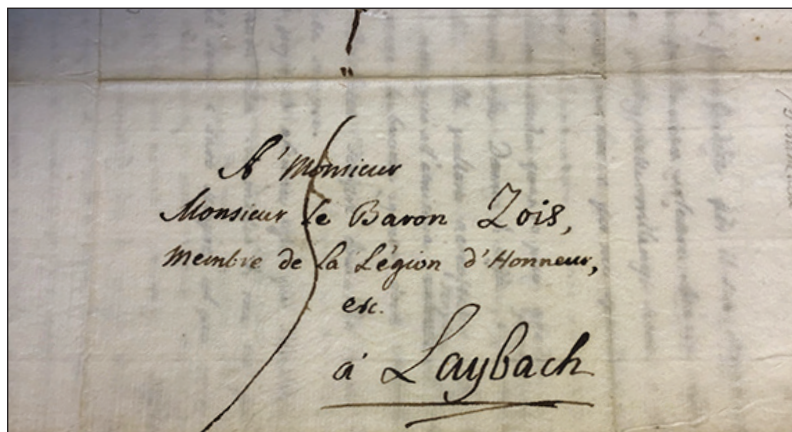 A' Monsieur
Monsieur le Baron Zois,
Membre de la Légion d'Honneur,
etc.
à Laybach